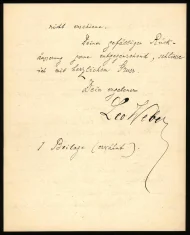 nicht erscheinen.
Deiner gefälligen Rück-
äusserung gerne entgegensehend, schliesse
ich mit herzlichem Gruss.
Dein ergebener
Leo Weber
1 Beilage (erwähnt).